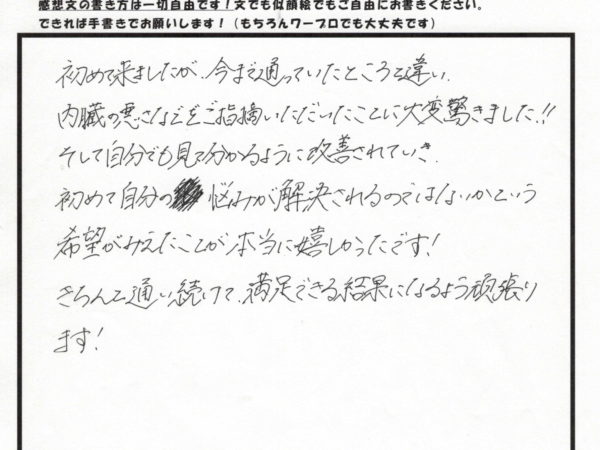 感想文の書き方は一切自由です！文でも似顔絵でもご自由にお書きください。
できれば手書きでお願いします！（もちろんワープロでも大丈夫です）
初めて来ましたが、今まで通っていたところと違い、
内臓の悪さなどをご指摘いただいたことに大変驚きました!!
そして自分でも見て分かるように改善されていき、
初めて自分の悩みが解決されるのではないかという
希望がみえたことが本当に嬉しかったです！
きちんと通い続けて、満足できる結果になるよう頑張り
ます！